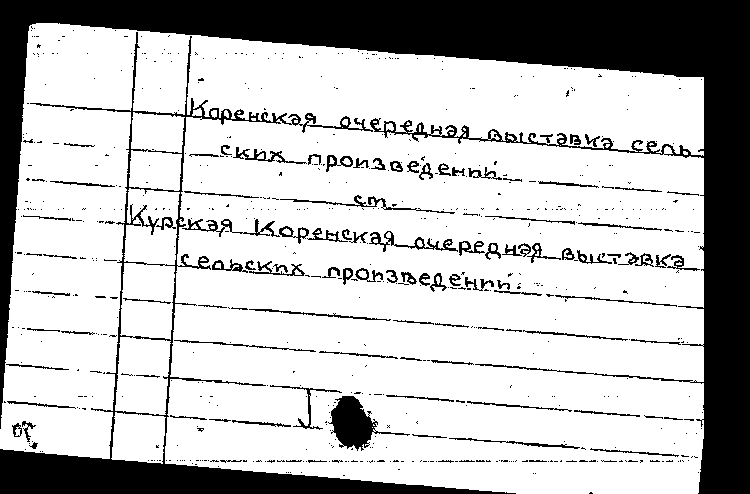 Коренская очередная выставка сель-
ских произведений.
см.
Курская Коренская очередная выставка
сельских произведений.